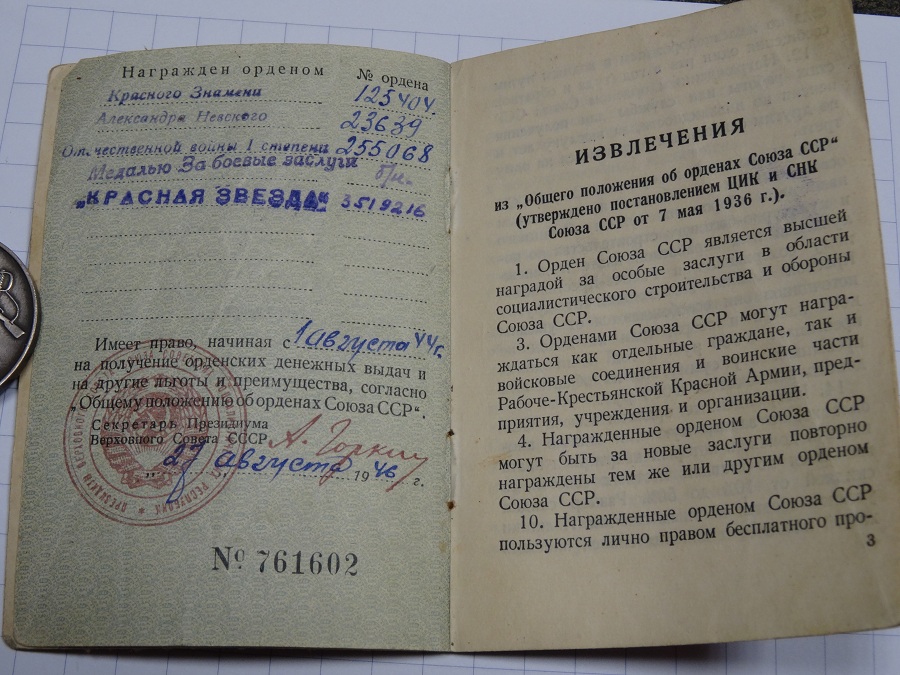 Награжден орденом № ордена
Красного Знамени 125404
Александра Невского 23639
Отечественной войны I степени 255068
Медалью За боевые заслуги б/н.
„КРАСНАЯ ЗВЕЗДА“ 3519216
Имеет право, начиная с 1 августа 44 г.
на получение орденских денежных выдач и
на другие льготы и преимущества, согласно
„Общему положению об орденах Союза ССР“.
Секретарь Президиума
Верховного Совета СССР А. Горкин
„27 августа 1946 г.
№ 761602
ИЗВЛЕЧЕНИЯ
из „Общего положения об орденах Союза ССР“
(утверждено постановлением ЦИК и СНК
Союза ССР от 7 мая 1936 г.).
1. Орден Союза ССР является высшей
наградой за особые заслуги в области
социалистического строительства и обороны
Союза ССР.
3. Орденами Союза ССР могут награ-
ждаться как отдельные граждане, так и
войсковые соединения и воинские части
Рабоче-Крестьянской Красной Армии, пред-
приятия, учреждения и организации.
4. Награжденные орденом Союза ССР
могут быть за новые заслуги повторно
награждены тем же или другим орденом
Союза ССР.
10. Награжденные орденом Союза ССР
пользуются лично правом бесплатного про-
3